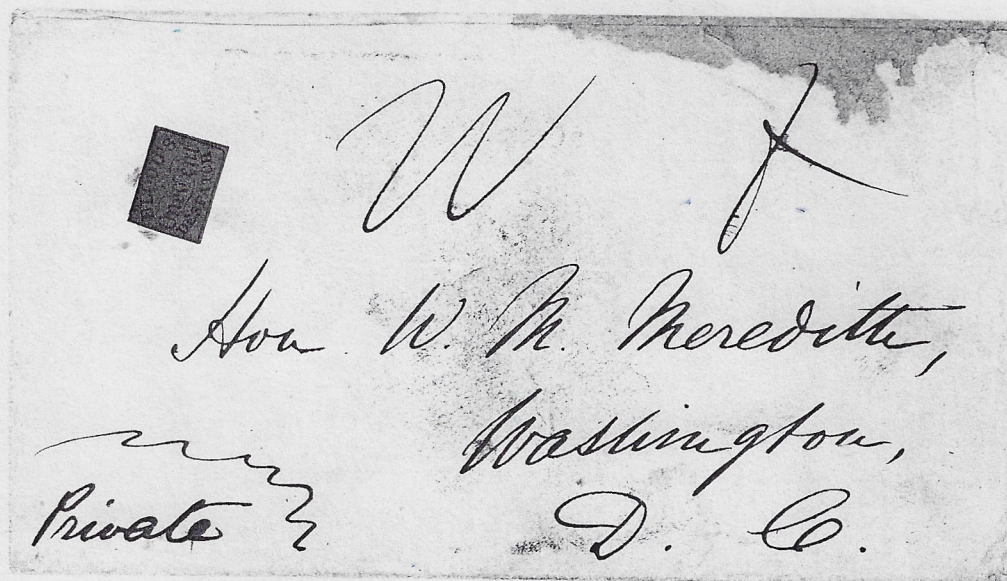 W
Hon W. M. Meredith,
Washington,
D. C.
Private